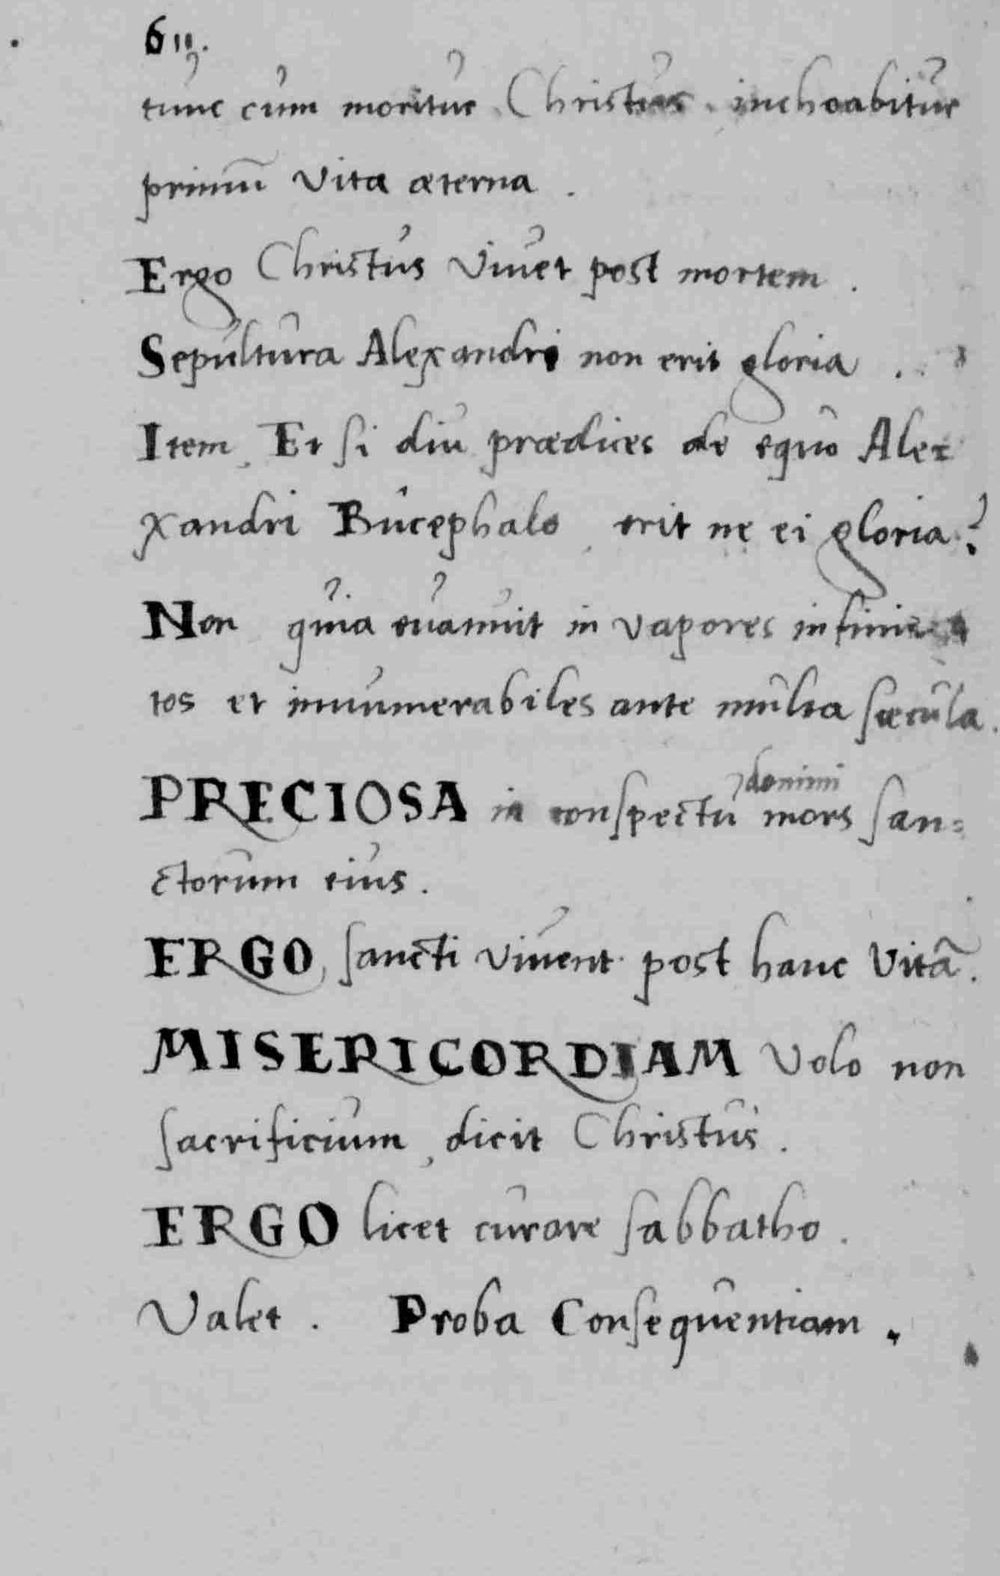 6
tunc cum moritur Christus. inchoabitur
primũ Vita æterna .
Ergo Christus Viuet post mortem .
Sepultura Alexandri non erit gloria .
Item, Et si diu prædices de equo Ale=
xandri Bucephalo, erit ne ei gloria?
Non quia euanuit in vapores infini=
tos et innumerabiles ante multa sæcula.
PRECIOSA in conspectu domini mors san=
ctorum eius .
ERGO, sancti viuent post hanc Vitã.
MISERICORDIAM Volo non
sacrificium, dicit Christus .
ERGO licet curare sabbatho .
Valet . Proba Consequentiam .